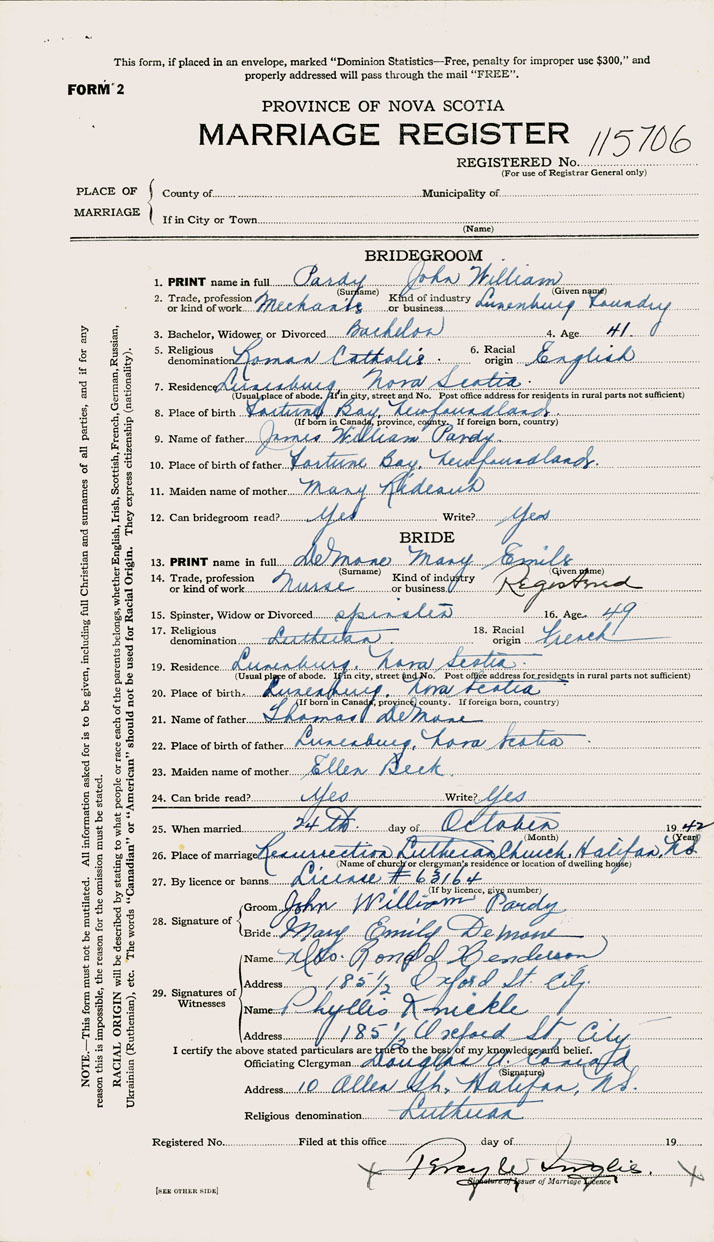 This form, if placed in an envelope, marked “Dominion Statistics—Free, penalty for improper use $300,” and
properly addressed will pass through the mail “FREE”.
FORM 2
PROVINCE OF NOVA SCOTIA
MARRIAGE REGISTER
115706
REGISTERED No.
(For use of Registrar General only)
PLACE OF MARRIAGE
County of Municipality of
If in City or Town
(Name)
BRIDEGROOM
1. PRINT name in full Pardy John William
(Surname) (Given name)
2. Trade, profession or kind of work Mechanic Kind of industry or business Lunenburg Foundry
3. Bachelor, Widower or Divorced Bachelor 4. Age 41
5. Religious denomination Roman Catholic 6. Racial origin English
7. Residence Lunenburg, Nova Scotia
(Usual place of abode. If in city, street and No. Post office address for residents in rural parts not sufficient)
8. Place of birth Fortune Bay, Newfoundland
(If born in Canada, province, county. If foreign born, country)
9. Name of father James William Pardy
10. Place of birth of father Fortune Bay, Newfoundland.
11. Maiden name of mother Mary
12. Can bridegroom read? Yes Write? Yes
BRIDE
13. PRINT name in full DeMone Mary Emily
(Surname) (Given name)
14. Trade, profession or kind of work Nurse Kind of industry or business Registered
15. Spinster, Widow or Divorced Spinster 16. Age 49
17. Religious denomination Lutheran 18. Racial origin French
19. Residence Lunenburg, Nova Scotia
(Usual place of abode. If in city, street and No. Post office address for residents in rural parts not sufficient)
20. Place of birth Lunenburg, Nova Scotia
(If born in Canada, province, county. If foreign born, country)
21. Name of father Thomas DeMone
22. Place of birth of father Lunenburg, Nova Scotia
23. Maiden name of mother Ellen Beck
24. Can bride read? Yes Write? Yes
25. When married 24th day of October 1942
(Month) (Year)
26. Place of marriage Resurrection Lutheran Church, Halifax, N.S.
(Name of church or clergyman's residence or location of dwelling house)
27. By licence or banns License # 63164
(If by licence, give number)
28. Signature of
Groom John William Pardy
Bride Mary Emily DeMone
29. Signatures of Witnesses
Name Mrs. Ronald Henderson
Address 185½ Oxford St. City.
Name Phyllis Knickle
Address 185½ Oxford St City
I certify the above stated particulars are true to the best of my knowledge and belief.
Officiating Clergyman Douglas A. Conrad
(Signature)
Address 10 Allen St., Halifax, N.S.
Religious denomination Lutheran
Registered No. Filed at this office day of 19
X Percy W Inglis. X
Signature of Issuer of Marriage Licence
[SEE OTHER SIDE]
NOTE.—This form must not be mutilated. All information asked for is to be given, including full Christian and surnames of all parties, and if for any
reason this is impossible, the reason for the omission must be stated.
RACIAL ORIGIN will be described by stating to what people or race each of the parents belongs, whether English, Irish, Scottish, French, German, Russian,
Ukrainian (Ruthenian), etc. The words “Canadian” or “American” should not be used for Racial Origin. They express citizenship (nationality).